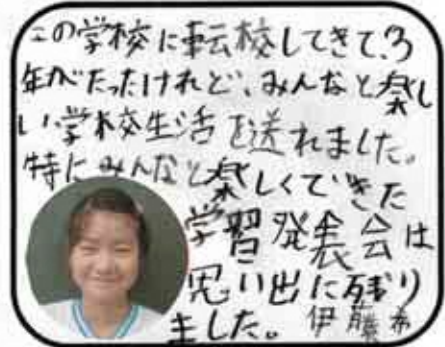 この学校に転校してきて、3
年がたったけれど、みんなと楽し
い学校生活を送れました。
特にみんなと楽しくできた
学習発表会は
思い出に残り
ました。 伊藤希